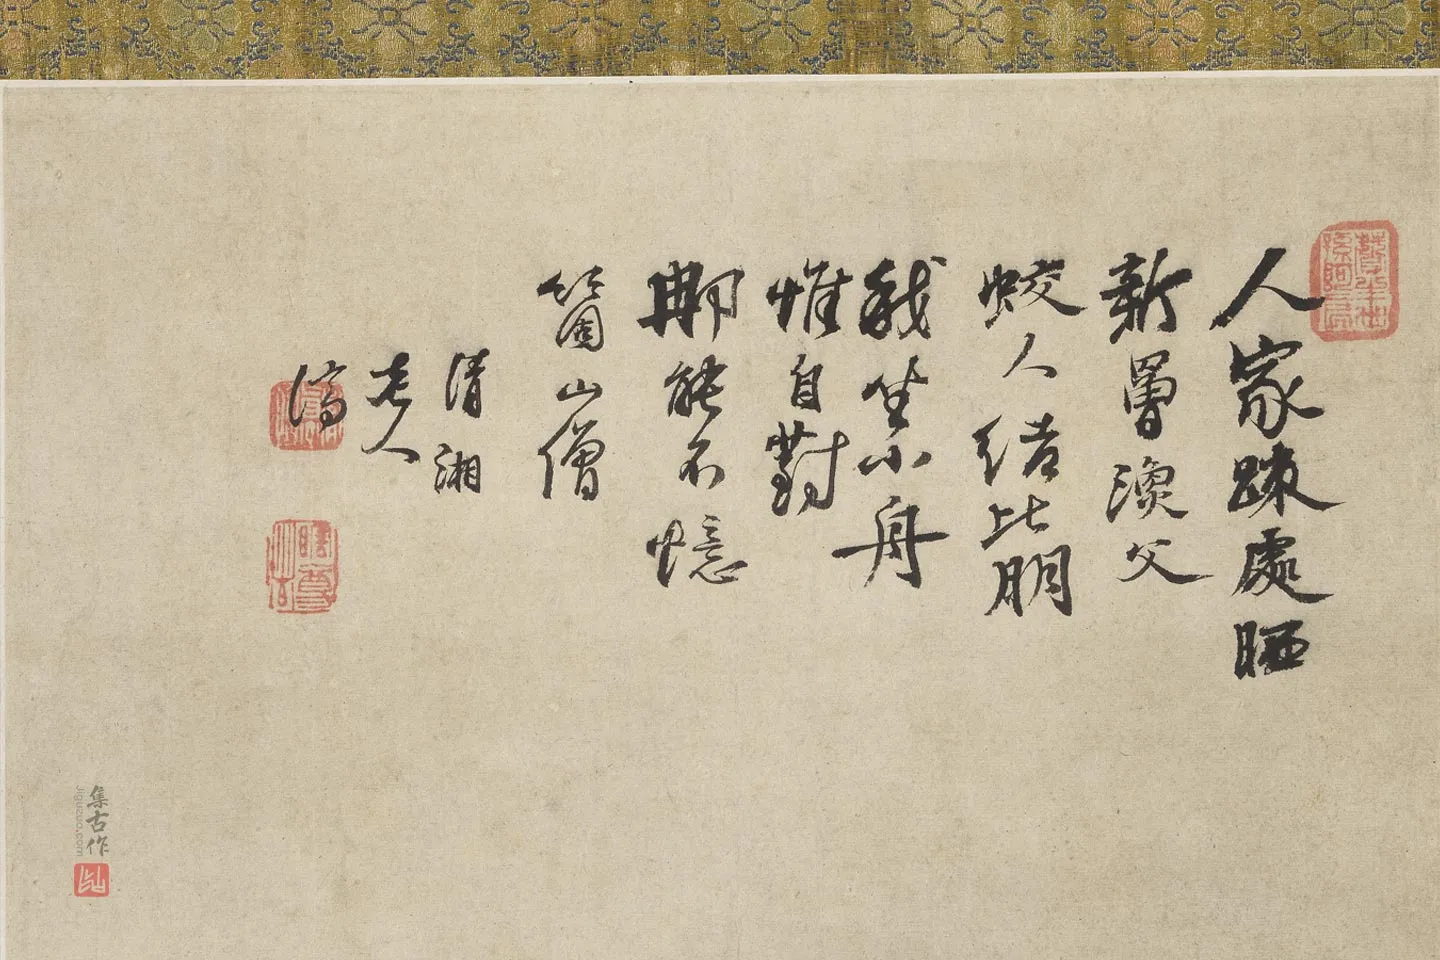 人家疎處晒
新罾漁父
蛟人結比朋
我坐小舟
惟自對
那能不憶
箇山僧
清湘
老人
濟
集古作
jiguzuo.com